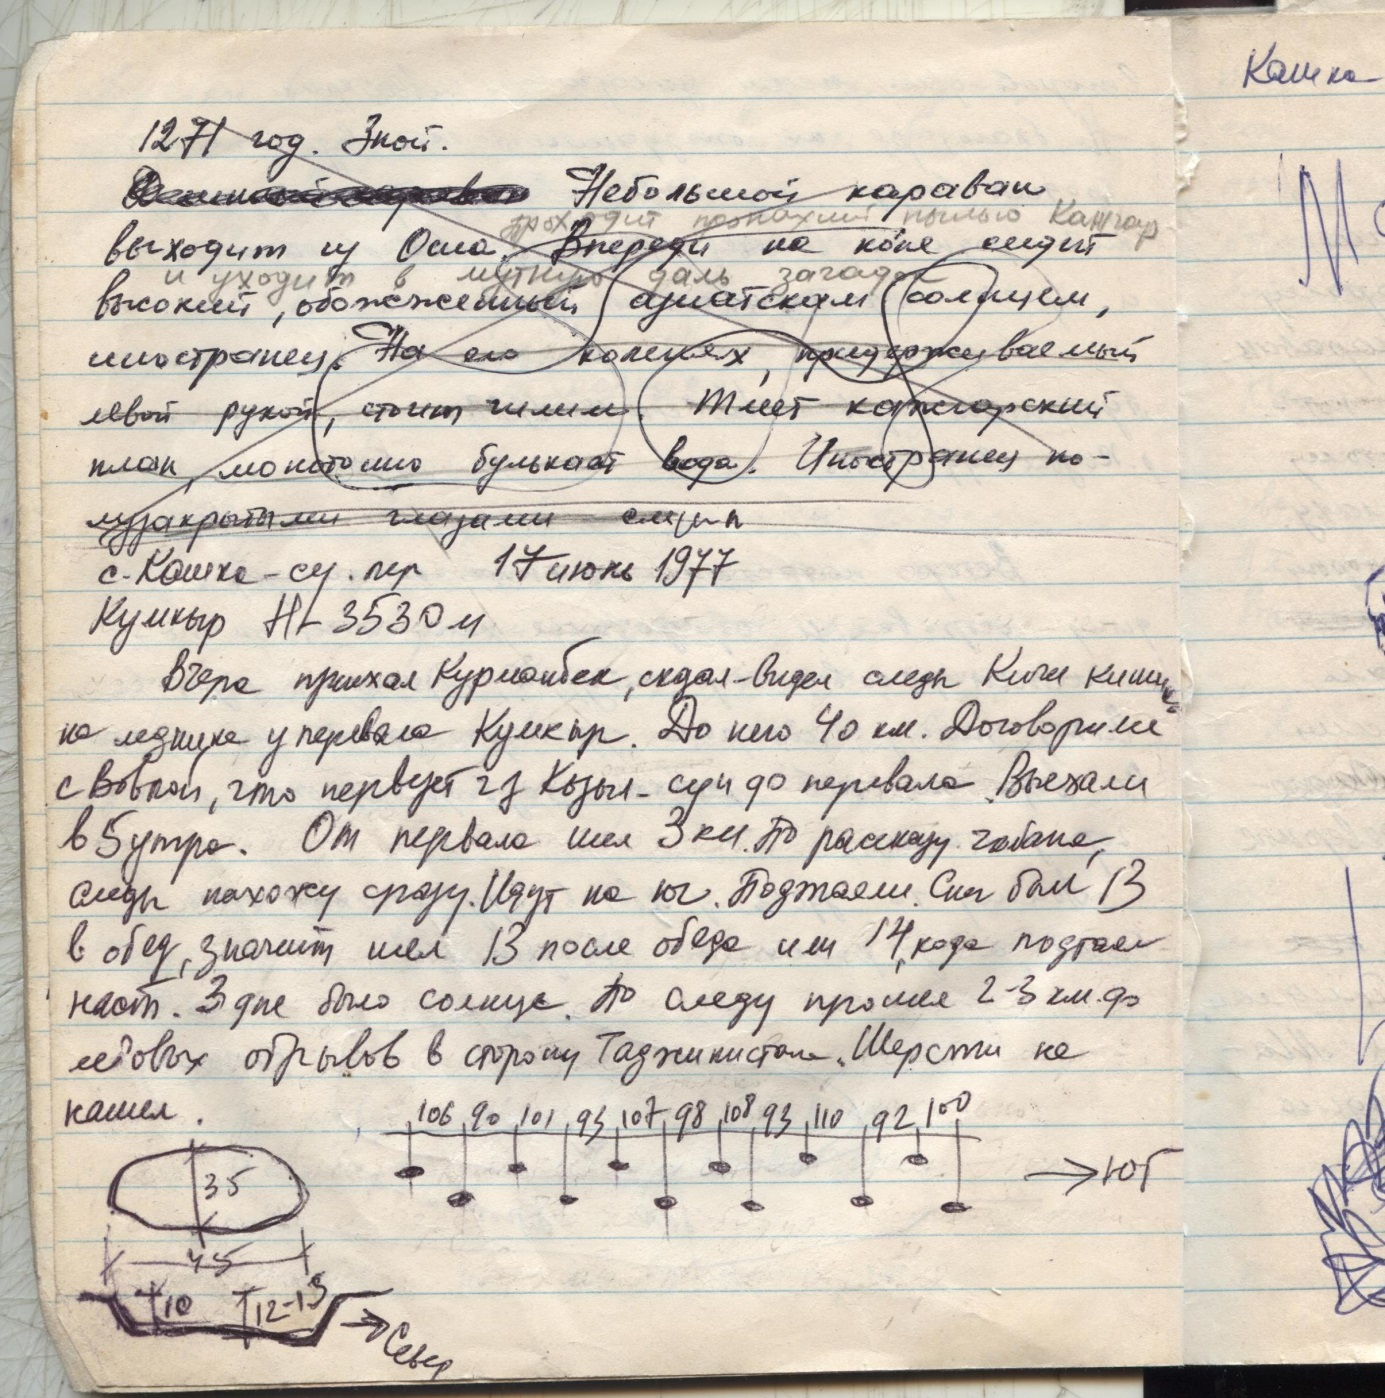 1271 год. Зной.
Небольшой караван
проходит пыльно Кашгар
выходит из Оша. Впереди на коне сидит
и уходит в мутную даль
высокий, обожженный азиатским солнцем,
иностранец. На его коленях, придерживаемый
левой рукой, стоит чилим. Тлеет кашгарский
план, монотонно булькает вода. Иностранец по-
лузакрытыми глазами
с. Кашка-су. пер 17 июнь 1977
Кумкыр Н-3530 м
Вчера приехал Курманбек, сказал-видел следы Кичи кишика
на леднике у перевала Кумкыр. До него 40 км. Договорились
с Вовкой, что из Кызыл-суи до перевала. Выехали
в 5 утра. От первала шел 3 км. По рассказу чабана,
следы нахожу сразу. Идут на юг. Подтаяли. Снег был 13
в обед, значит шел 13 после обеда или 14, када подтаял
наст. 3 дня было солнце. По следу прошел 2-3 км. до
ледовых обрывов в сторону Таджикистана. Шерсти не
нашел.
106 90 101 93 107 98 108 93 110 92 100
→ЮГ
35
45
10 12-13
→Север
Кашка-